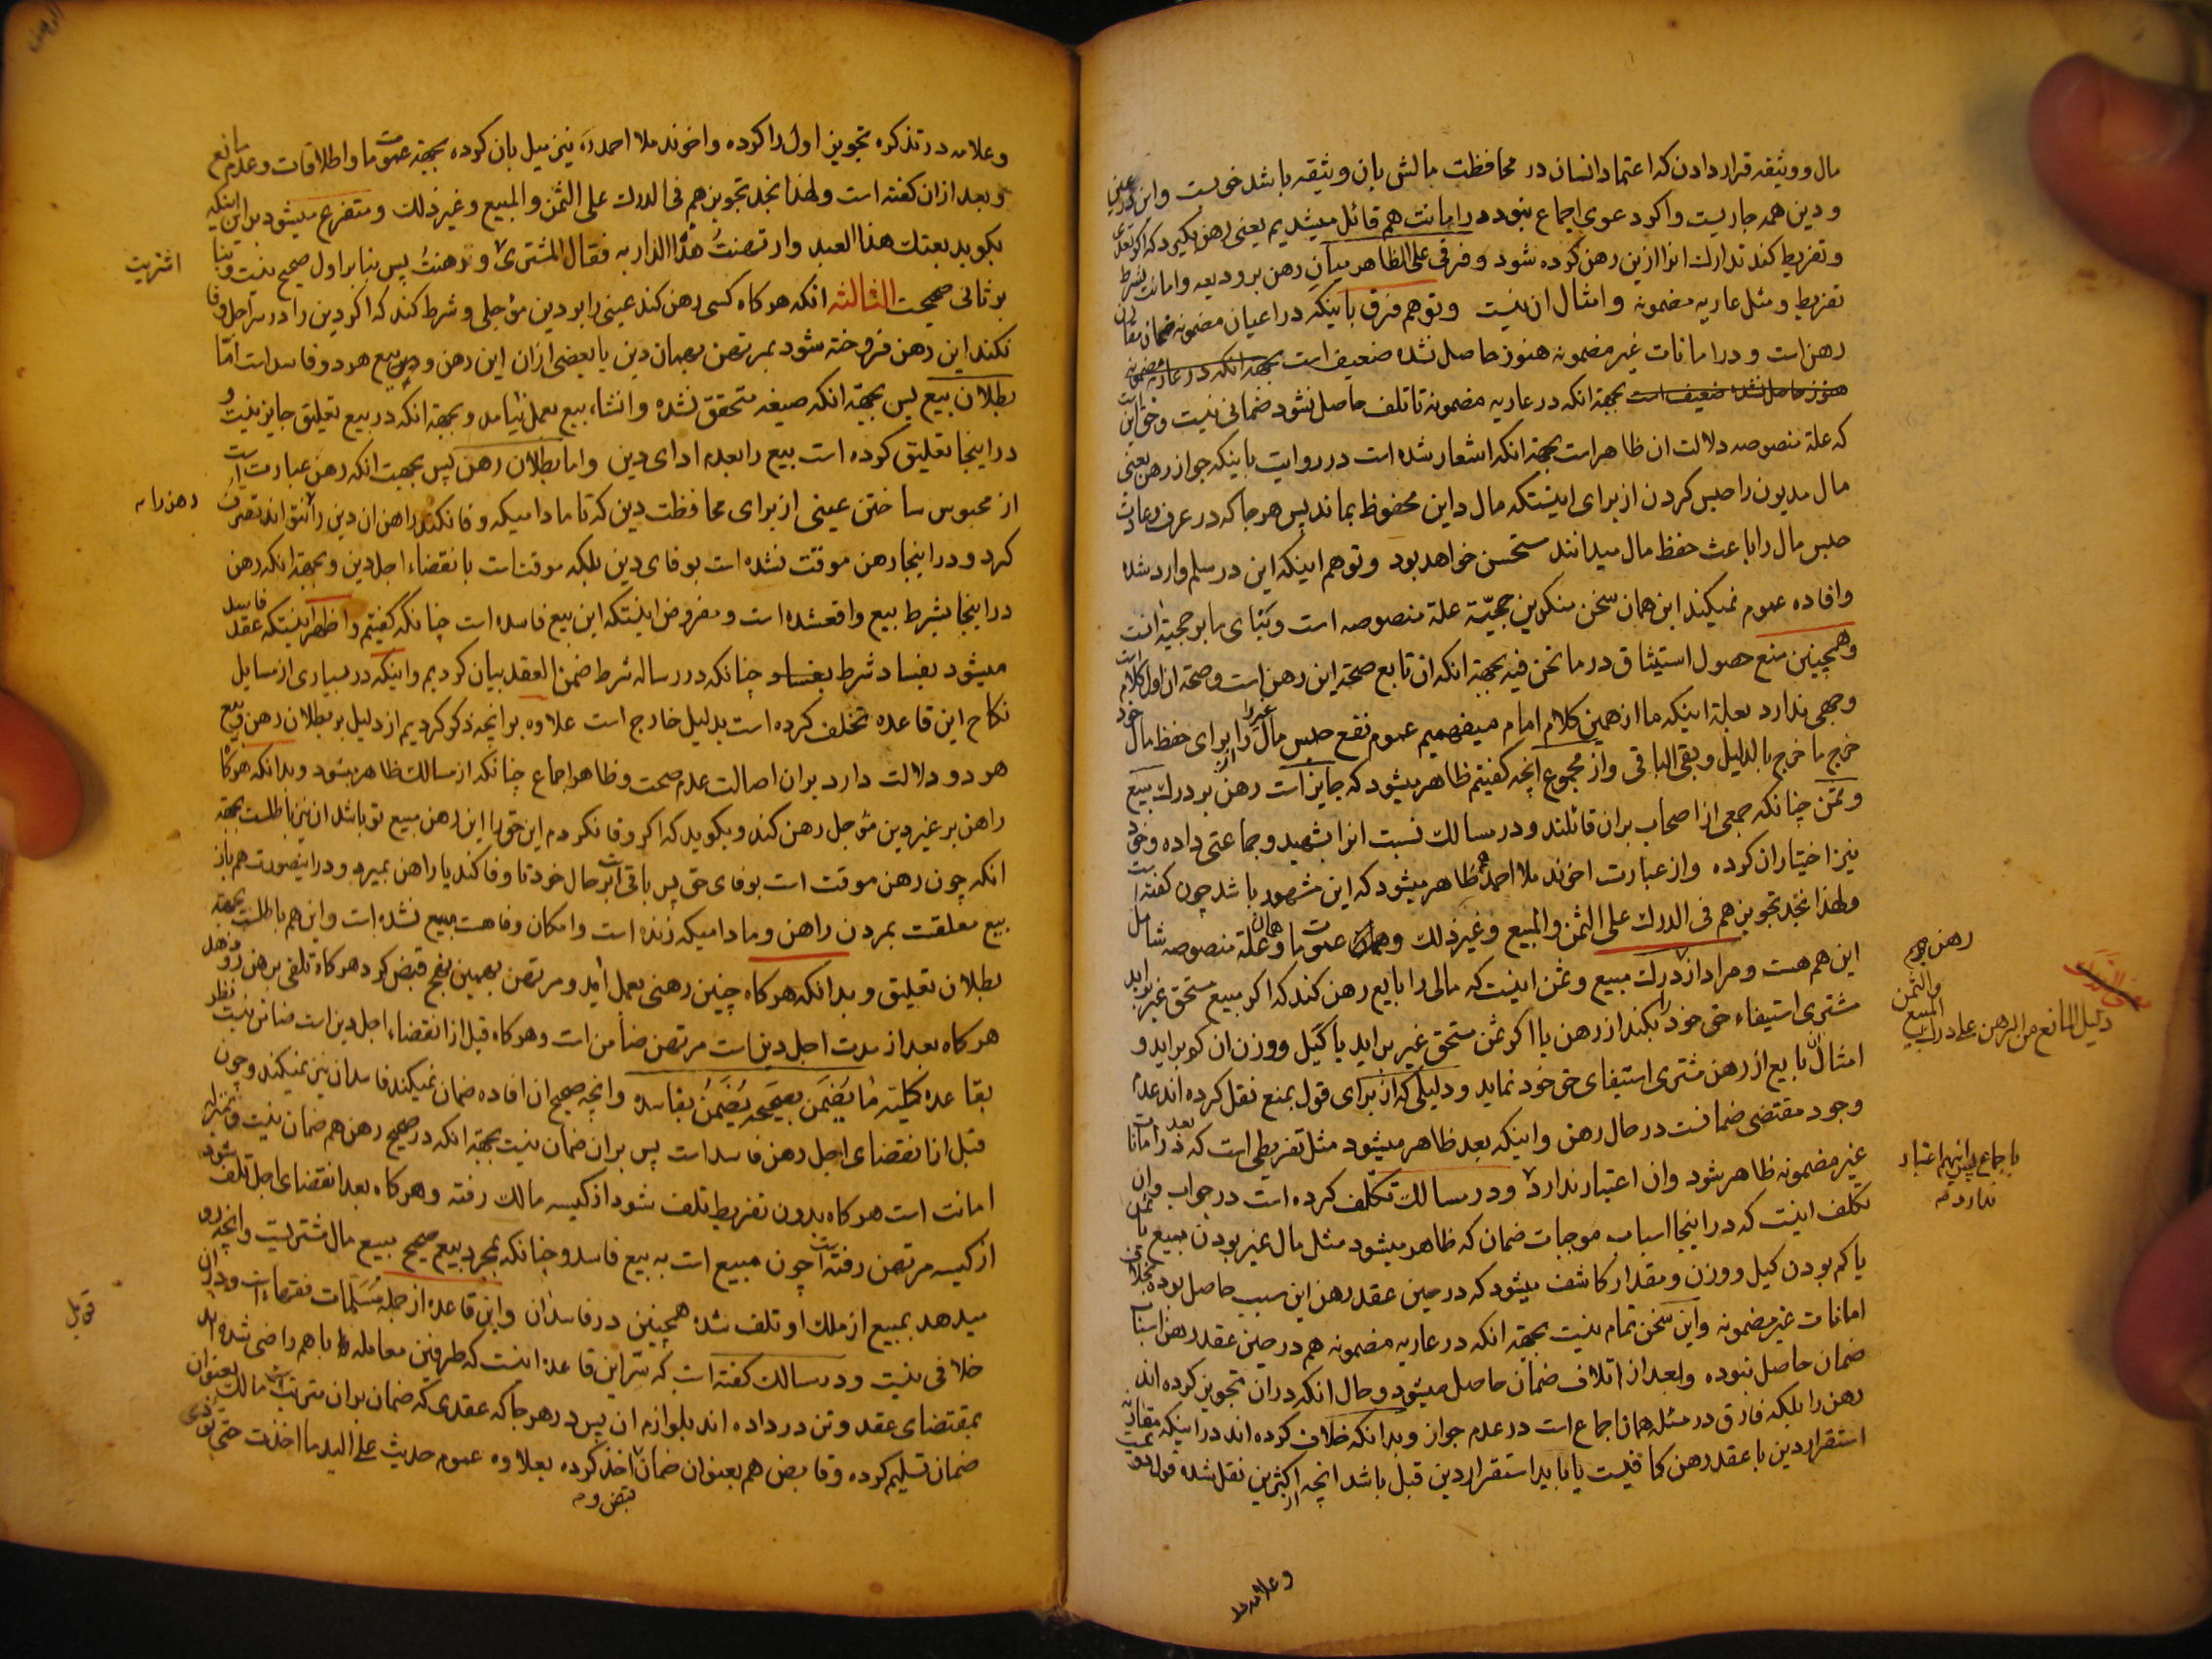 مال و وثیقه قرار دادن که اعتماد انسان در محافظت مالش بان وثیقه باشد خوبست و این در عین
و دین همه جاریست و اکر دعوی اجماع نبود در امانت هم قائل میشدیم یعنی رهن بکیرد که اکر تعدی
و تفریط کند تدارك انرا ازین رهن کرده شود و فرقی علی الظاهر میان رهن بر ودیعه و امانت بشرط
تفریط و مثل عاریه مضمونه و امثال ان نیست و توهم فرق باینکه در اعیان مضمونه ضمان مقارن
رهن است و در امانات غیر مضمونه هنوز حاصل نشده ضعیف است بجهة انکه در عاریه مضمونه
هنوز حاصل نشده ضعیف است بجهة انکه در عاریه مضمونه تا تلف حاصل نشود ضمانی نیست و حق این است
که علة منصوصه دلالت ان ظاهر است بجهة انکه اشعار شده است در روایت باینکه جواز رهن یعنی
مال مدیون را حبس کردن از برای اینستکه مال داین محفوظ بماند پس هر جا که در عرف و عادت
حبس مال را باعث حفظ مال میدانند مستحسن خواهد بود و توهم اینکه این در سلم وارد شده
و افاده عموم نمیکند این همان سخن منکرین حجیّة علة منصوصه است و بنای ما بر حجیة انست
و همچنین منع حصول استیثاق در ما نحن فیه بجهة انکه ان تابع صحة این رهن است و صحة ان اول کلام است
وجهی ندارد بعلة اینکه ما از همین کلام امام میفهمیم عموم نفع حبس مال غیر را از برای حفظ مال خود
خرج ما خرج بالدلیل و بقی الباقی و از مجموع انچه کفتیم ظاهر میشود که جایز است رهن بر درك مبیع
و ثمن چنانکه جمعی از اصحاب بران قائلند و در مسالك نسبت انرا بشهید و جماعتی داده و خود
نیز اختیار ان کرده و از عبارت اخوند ملا احمد ره ظاهر میشود که این مشهور باشد چون کفته است
و لهذا نجد تجویزهم فی الدرك علی الثمن والمبیع و غیر ذلك و همان عمومات و همان علة منصوصه شامل
این هم هست و مراد از درك مبیع و ثمن اینست که مالی را بایع رهن کند که اکر مبیع مستحق غیر براید
مشتری استیفاء حق خود را بکند از رهن یا اکر ثمن مستحق غیر براید یا کیل و وزن ان کم براید و
امثال ان بایع از رهن مشتری استیفای حق خود نماید و دلیلی که از برای قول بمنع نقل کرده اند عدم
وجود مقتضی ضمانست در حال رهن و اینکه بعد ظاهر میشود مثل تفریطی است که بعد در امانات
غیر مضمونه ظاهر شود و ان اعتبار ندارد و در مسالك تکلف کرده است در جواب و ان
تکلف اینست که در اینجا اسباب موجبات ضمان که ظاهر میشود مثل مال غیر بودن مبیع یا ثمن
یا کم بودن کیل و وزن و مقدار کاشف میشود که در حین عقد رهن این سبب حاصل بوده بخلاف
امانات غیر مضمونه و این سخن تمام نیست بجهة انکه در عاریه مضمونه هم در حین عقد رهن اسباب
ضمان حاصل نبوده و بعد از اتلاف ضمان حاصل میشود و حال انکه در ان تجویز کرده اند
رهن را بلکه فارق در مسئله همان اجماع است در عدم جواز و بدانکه خلاف کرده اند در اینکه مقارنه
استقرار دین با عقد رهن کافیست یا باید استقرار دین قبل باشد انچه از اکثرین نقل شده قول دویم
رهن
والثمن
دلیل المانع من الرهن علی درك المبیع
باجماع پس انهم اعتبار
ندارد
و علامه در
و علامه در تذکره تجویز اول را کرده و اخوند ملا احمد ره نیز میل بان کرده بجهة عمومات و اطلاقات و عدم مانع
و بعد از ان کفته است و لهذا نجد تجویزهم فی الدرك علی الثمن والمبیع و غیر ذلك و متفرع میشود بر این اینکه
بکوید بعتك هذا العبد وارتهنتُ هذا الدار به فقال المشتری و رهنتُ پس بنا بر اول صحیح نیست و بنا
بر ثانی صحیحست الثالثه انکه هر کاه کسی رهن کند عینی را بر دین مؤجلی و شرط کند که اکر دین را در سر اجل وفا
نکند این رهن فروخته شود بمرتهن بهمان دین یا بعضی از ان این رهن و این بیع هر دو فاسد است امّا
بطلان بیع پس بجهة انکه صیغه متحقق نشده و انشاء بیع بعمل نیامده و بجهة انکه در بیع تعلیق جایز نیست و
در اینجا تعلیق کرده است بیع را بعدم ادای دین و اما بطلان رهن پس بجهت انکه رهن عبارت است
از محبوس ساختن عینی از برای محافظت دین که تا مادامیکه وفا نکند راهن ان دین را نتواند تصرف
کرد و در اینجا رهن موقت نشده است بوفای دین بلکه موقت است بانقضاء اجل دین و بجهة انکه رهن
در اینجا بشرط بیع واقعشده است و مفروض اینستکه این بیع فاسده است چنانکه کفتیم و اظهر اینستکه عقد فاسد
میشود بفساد شرط بفساد چنانکه در رساله شرط ضمن العقد بیان کردیم و اینکه در بسیاری از مسایل
نکاح این قاعده تخلف کرده است بدلیل خارج است علاوه بر انچه ذکر کردیم از دلیل بر بطلان رهن و بیع
هر دو دلالت دارد بران اصالت عدم صحت و ظاهر اجماع چنانکه از مسالك ظاهر میشود و بدانکه هرکاه
راهن بر غیر دین مؤجل رهن کند و بکوید که اکر وفا نکردم این حق را این رهن مبیع تو باشد ان نیز باطلست بجهة
انکه چون رهن موقت است بوفای حق پس باقی است بر حال خود تا وفا کند یا راهن بمیرد و در اینصورت هم باز
بیع معلقست بمردن راهن و مادامیکه زنده است و امکان وفا هست مبیع نشده است و این هم باطلست بجهة
بطلان تعلیق و بدانکه هر کاه چنین رهنی بعمل اید و مرتهن بهمین نهج قبض کرد هر کاه تلفی بر رهن رو دهد
هر کاه بعد از مدت اجل دین است مرتهن ضامن است و هر کاه قبل از انقضاء اجل دین است ضامن نیست نظر
بقاعده کلیه ما یُضمَن بصحیحه یُضمَنُ بفاسده و انچه صحیح ان افاده ضمان نمیکند فاسد ان نیز نمیکند و چون
قبل از انقضای اجل رهن فاسد است پس بران ضمان نیست بجهة انکه در صحیح رهن هم ضمان نیست و بمنزله
امانت است هر کاه بدون تفریط تلف شود از کیسه مالك رفته و هر کاه بعد انقضای اجل تلف شود
از کیسه مرتهن رفته است چون مبیع است به بیع فاسد و چنانکه بمجرد بیع صحیح مبیع مال مشتریست و انچه رو
میدهد بمبیع از ملك او تلف شده همچنین در فاسد ان و این قاعده از جمله مُسَلّمات فقهاء است و در ان
خلافی نیست و در مسالك کفته است که سرّ این قاعده اینست که طرفین معامله باهم راضی شده اند
بمقتضای عقد و تن در داده اند بلوازم ان پس در هر جا که عقدی که ضمان بران مترتب است مالك بعنوان
ضمان تسلیم کرده و قابض هم بعنوان ضمان اخذ کرده بعلاوه عموم حدیث علی الید ما اخذت حتی تؤدی
قبض و
رهن را